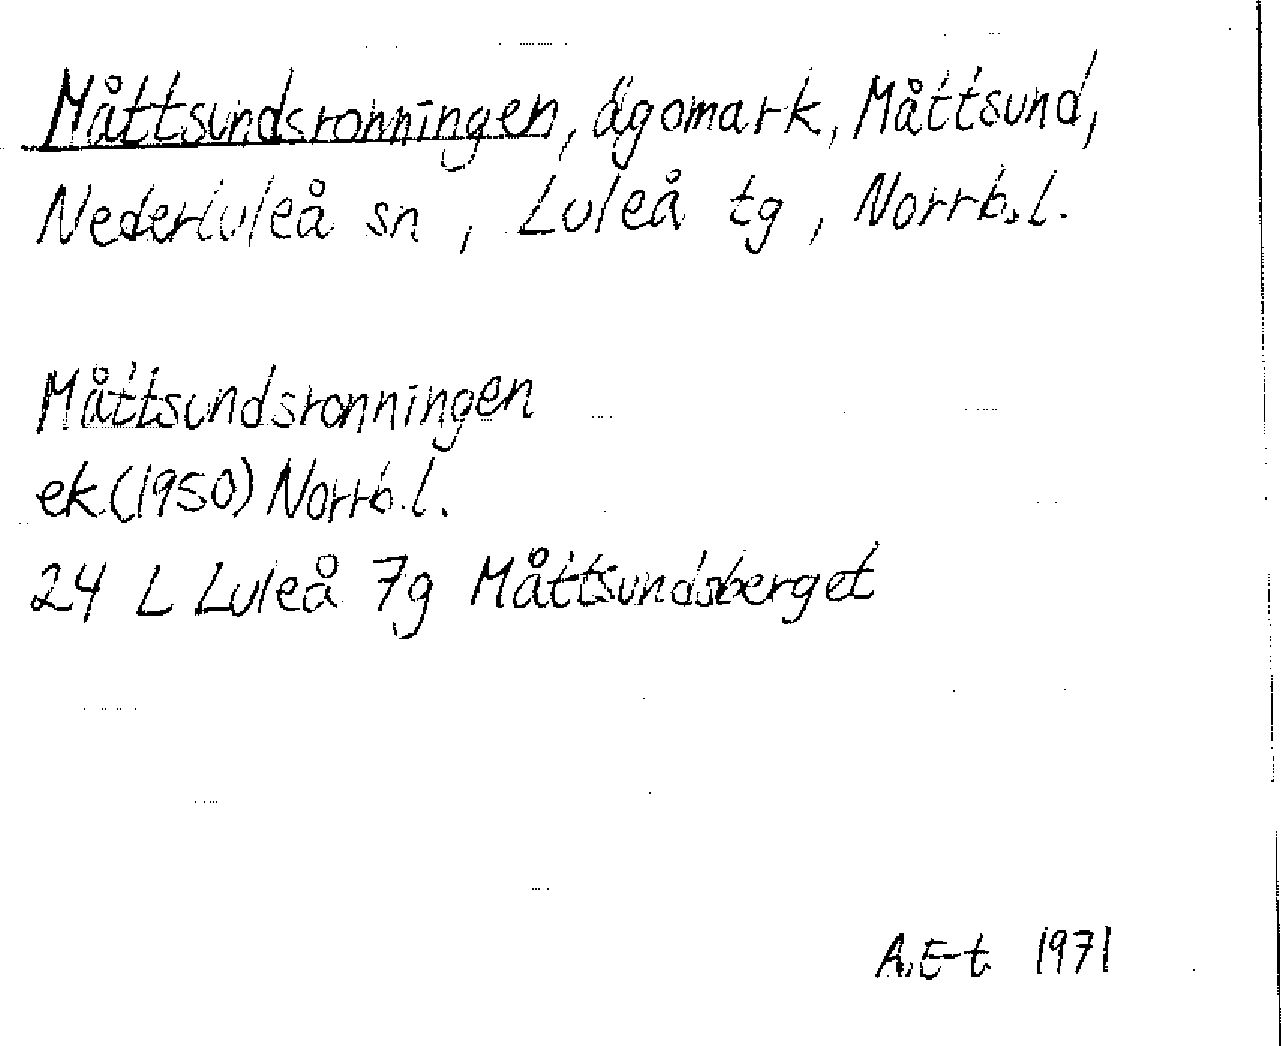 Måttsundsronningen, ägomark, Måttsund,
Nederluleå sn, Luleå tg, Norrb.l.
Måttsundsronningen
ek(1950) Norrb.l.
24 L Luleå 7g Måttsundsberget
A.E-t 1971